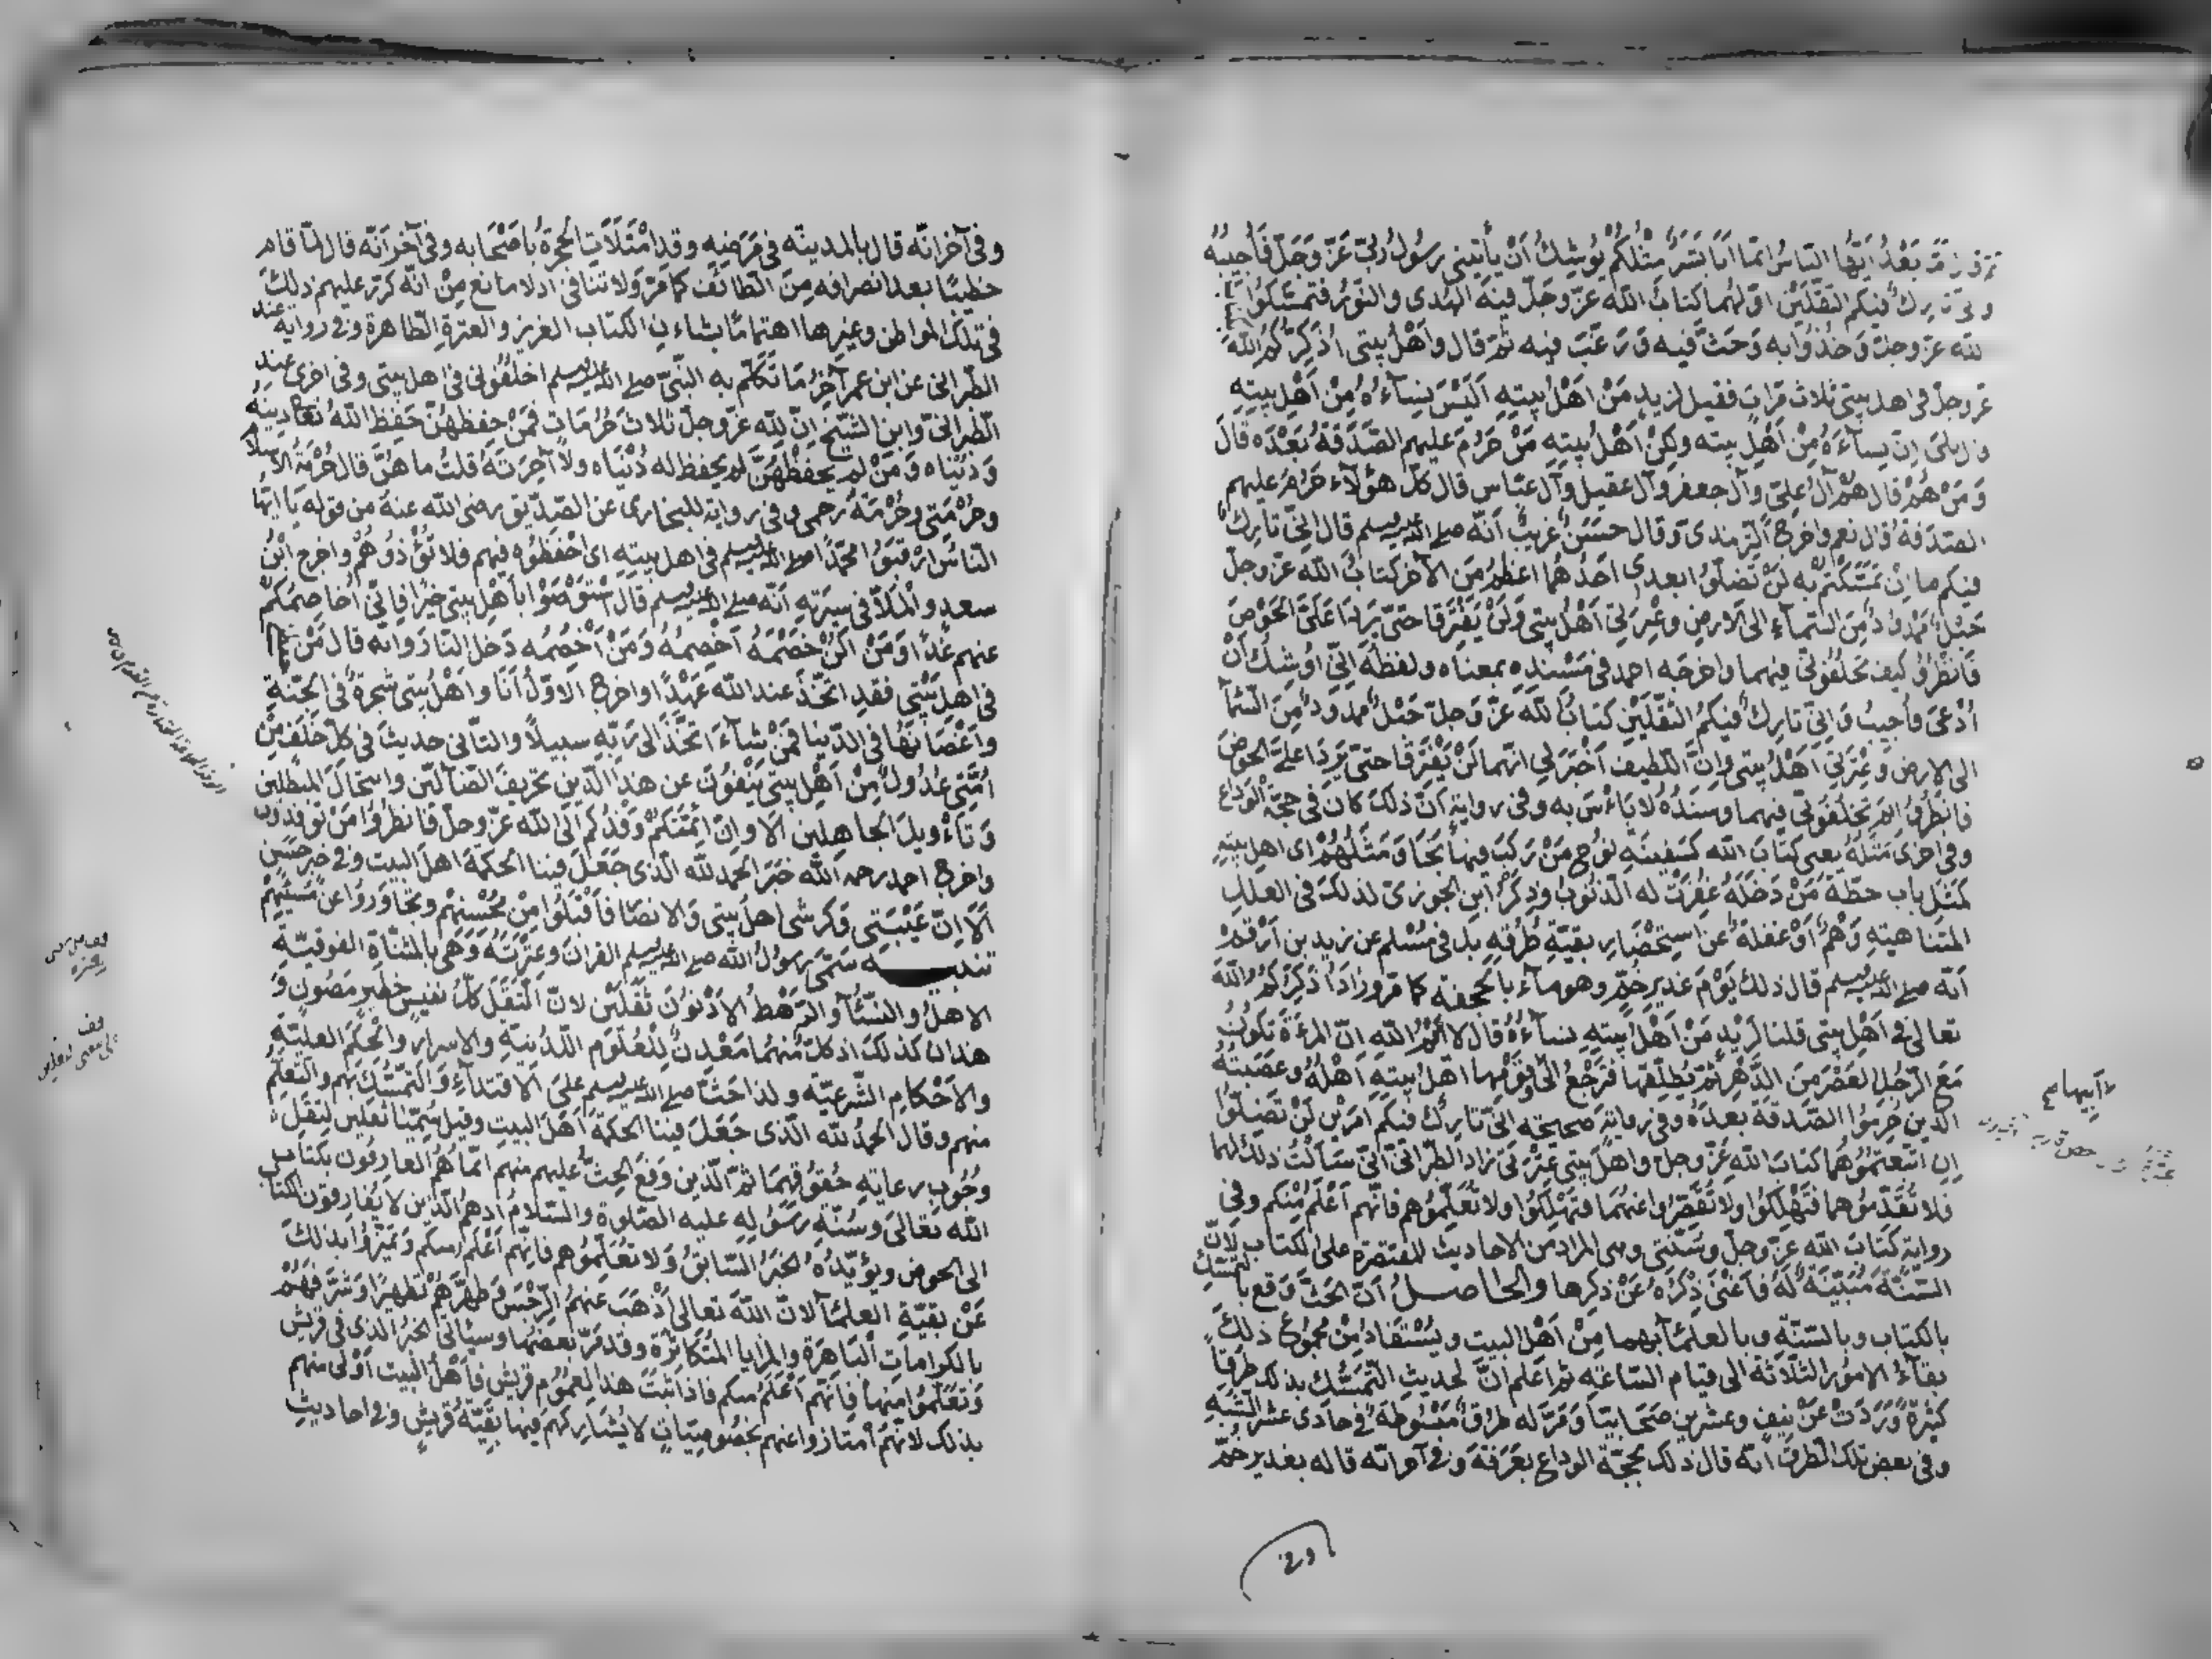 بَعْدُ اَيُّهَا النَّاسُ اِنَّمَا اَنَا بَشَرٌ مِثْلُكُمْ يُوْشِكُ اَنْ يَأْتِيَنِي رَسُولُ رَبِّي عَزَّ وَجَلَّ فَأُجِيبُهُ
تَارِكٌ فِيكُم الثَّقَلَيْن اَوَّلُهُمَا كِتَابُ اللهِ عَزَّ وَجَلَّ فِيهِ الهُدَى والنُّورُ فَتَمَسَّكُوا بكتاب
الله عز وجل وَخُذُوا بِه وَحَثَّ فيه وَرَغَّبَ فِيه ثُمَّ قال وأَهْلُ بيتي أُذَكِّرُكُمُ اللهَ
عز وجل في اهل بيتي ثلاث مَرَّاتٍ فقيل لزيدٍ مَنْ اَهْلُ بيتِهِ اَلَيْسَ نِسَآءُهُ مِنْ اَهْلِ بَيْتِهِ
قال بلى اِنَّ نِسَآءَهُ مِنْ اَهْلِ بيته ولكن اَهْلُ بيتِهِ مَنْ حَرُمَ عليهم الصَّدَقَةُ بَعْدَه قَالَ
وَمَنْ هُمْ قال هُمْ آلُ عَلِيٍّ وآل جعفر وآل عقيل وآل عبّاس قال كلّ هؤلاء حَرُمَ عليهم
الصدقة قال نعم واخرج الترمذي وقال حسنٌ غريبٌ أنّه صلى الله عليه وسلم قال إنّي تارك
فيكم ما اِنْ تَمَسَّكْتُمْ بِه لَنْ تَضِلّوا بعدي اَحَدُهُمَا اعظمُ مِنَ الآخر كتابُ الله عزّ وجلّ
حَبْلٌ مَمْدُودٌ مِنَ السّمآء الى الارضِ وعِتْرتي اَهْلُ بيتي ولَنْ يَفْتَرِقَا حتّى يَرِدَا عَلَيَّ الحَوْضَ
فَانْظُرُوا كيف تَخْلُفُونِّي فيهما واخرجه احمد في مُسْنَدِه بمعناه ولفظه اِنّي اُوشِكُ اَنْ
اُدْعَى فأُجيبُ وَاِنّي تَارِكٌ فيكمُ الثَّقَلَيْنِ كتابُ الله عَزّ وَجلّ حَبْلٌ ممدودٌ مِنَ السّمآ
الى الارض وَعِتْرَتي اَهْلُ بيتي واِنَّ اللَّطيفَ اَخْبَرَنِي انّهما لَنْ يَفْتَرِقَا حتّى يَرِدَا عَلَيَّ الحَوْضَ
فانظروا بم تخلفوني فيهما وسندُهُ لا بَأْسَ به وفي رواية انّ ذلك كان في حجّة الوداع
وفي اخرى مَثَلُهُ يعني كتابَ الله كَسَفينَةِ نوحٍ مَنْ رَكِبَ فيها نَجَا وَمَثَلُهُمْ اى اهل بيته
كَمَثَلِ باب حِطّةٍ مَنْ دَخَلَهُ غُفِرَتْ له الذنوبُ وذِكْرُ ابنِ الجوزي لذلك في العلل
المتناهية وَهْمٌ اَوْ غفلةٌ عن استِحْضَارِ بقيّةِ طُرُقِهِ بل في مُسْلم عن زيد بن اَرْقمَ
اَنّه صلى الله عليه وسلم قال ذلك يَوْمَ غَديرِ خُمّ وهو مآء بالجحفة كما مرّ وزادَ أُذَكِّرُكُمُ اللهَ
تعالى في اَهْلِ بيتي قلنا لزيْدٍ مَنْ اَهْلُ بيتِهِ نِسآءُهُ قال لا اَيْمُ اللهِ انّ المرْءَةَ تكونُ
مَعَ الرّجُلِ العَصْرَ مِنَ الدَّهْرِ ثُمَّ يُطلّقها فتَرْجعُ الى قومها اَهْلُ بيتِهِ اَهْلُهُ وعَصَبتُهُ
الذين حُرِمُوا الصَّدَقَةَ بعدهُ وفي رواية صحيحة اِنّي تارِكٌ فيكم اَمرَيْن لَنْ تَضلّوا
اِنِ اتّبعتُمُوهُما كتابَ اللهِ عَزّ وجل واَهْلَ بيتي عِتْرتي زاد الطّبراني اِنّي سَأَلْتُ ذلك لهما
فلا تَقَدّمُوهما فَتَهْلِكُوا ولا تُقَصِّرُوا عنهُمَا فَتَهْلِكُوا ولا تُعَلِّمُوهم فَانّهم اَعْلَمُ مِنْكم وفي
رواية كتابَ الله عزّ وجلّ وسُنّتي وهى المراد من الاحاديث المقتصرة على الكتاب لانّ
السُّنّةَ مُبَيِّنَةٌ لهُ فَاَغْنَى ذِكْرُه عَنْ ذكرِها والحاصل اَنّ الحَثّ وَقَع بالتمسّك
بالكتاب وبالسّنّة وبالعلمآ بهما مِنْ اَهْلِ البيت ويُسْتَفَادُ مِنْ مجموع ذلك
بقآءُ الامُور الثّلاثة الى قيام السّاعة ثمّ اعلم انّ لحديث التّمسّك بذلك طُرُقًا
كثيرةً وَرَدَتْ عَنْ نيّف وعشرين صَحَابيّا وَمَرَّ له طرُقٌ مَبْسُوطَةٌ في حادى عشر الشُّبَهِ
وفي بعض تلك الطّرق اَنّه قال ذلك بحجّة الوداع بعَرَفَةَ وفي آخر انّه قاله بغدير خمّ
اوفى
وفي آخر انّه قال بالمدينه في مَرَضِهِ وقد امْتَلَأتِ الحُجرةُ باَصْحَابه وفي آخر اَنّه قال لمّا قام
خطيبًا بعد انصرافه مِنَ الطّائف كما مَرّ ولا تنافى اذ لا مانع مِنْ اَنّه كرّر عليهم ذلك
في تلك المواطن وغيرها اهتمامًا بشاءن الكتاب العزيز والعترة الطّاهرة وفي رواية عند
الطّبراني عن ابن عمر آخِرُ مَا تكَلّم به النّبيّ صلى الله عليه وسلم اخلُفُوني في اهل بيتي وفي اخرى عند
الطّبرانيّ وابن الشّيخ اِنّ لله عزّ وجلّ ثلاثَ حُرُمَاتٍ فمَنْ حفظهُنّ حَفِظَ اللهُ تعالى دينَهُ
وَدُنْيَاه وَمَنْ لم يحفظْهُنَّ لم يحفظ له دُنْيَاه ولا آخِرَتَهُ قلتُ ما هُنّ قال حُرْمَةُ الاسلام
وحُرْمَتي وحُرْمَةُ رَحِمي وفي رواية للبخارى عن الصّدّيق رضى الله عنه من قوله يَا ايّها
النّاسُ ارْقُبُوا محمّدًا صلى الله عليه وسلم في اهل بيته اى احْفَظُوه فيهم فلا تُؤْذُوهُمْ واخرج ابْنُ
سعدٍ والمُلّا في سيرَتِهِ اَنّه صلى الله عليه وسلم قال اسْتَوْصُوا باَهْلِ بيتي خَيْرًا فانّي اُخَاصِمُكم
عنهم غَدًا وَمَنْ اَكُنْ خَصْمَهُ اَخْصِمُهُ وَمَنْ اَخْصِمُه دَخل النّار وانّه قال مَنْ حفظني
في اهل بَيْتي فقدِ اتّخذَ عند الله عَهْدًا واخرج الاوّلُ اَنَا واَهْلُ بيتي شجرةٌ في الجنّة
واَغْصَانُهَا في الدّنيا فمَنْ شآءَ اتّخذَ الى رَبّهِ سبيلًا والثّاني حديثَ في كلّ خَلَفٍ مِنْ
اُمّتي عُدُولٌ مِنْ اَهْلِ بيتي يَنْفُونَ عن هذا الدّينِ تحريفَ الضّآلّين وانتحالَ المبطلين
وَتَأْويلَ الجاهلين اَلا واِنّ اَئمّتَكُمْ وَفْدُكُم الَى الله عزّ وجلّ فانظُرُوا مَنْ تُوفدُون
واخرج احمد رحمه الله خَبَرَ الحمد لله الّذى جَعَلَ فينا الحكمةَ اهلَ البيت وفي خبر حَسَنٍ
اَلَا اِنّ عَيْبَتي وَكرشى اهلُ بيتي والانصارُ فاقبَلُوا مِنْ مُحْسنهِمْ وتجَاوَزُوا عن مُسيئهِمْ
تنبيه سَمّى رَسولُ الله صلى الله عليه وسلم القرآنَ وعِتْرَتَهُ وَهى بالمثنّاة الفوقيّة
الاهلُ والنّسْلُ والرّهطُ الاَدْنَوْنَ ثَقَلَيْن لانّ الثّقلَ كلّ نفيس خطير مَصُونٍ وَ
هذان كذلك اذ كلّ منهُمَا مَعْدِنٌ للعُلُومِ اللّدُنيّةِ والاسرار والحِكَم العليّة
والاَحْكامِ الشّرعيّة ولذا حَثّ صلى الله عليه وسلم على الاقتداءِ والتّمسّك بهم والتّعلّم
منهم وقال الحمدُ لله الّذى جَعَلَ فينا الحكمةَ اَهْلَ البيت وقيل سُمّيَا ثقلين لثِقَلِ
وُجُوبِ رعايةِ حُقُوقِهمَا ثمّ الّذين وَقَعَ الحثّ عليهم منهم انّما هُمُ العارِفُون بكتاب
الله تعَالى وسُنّةِ رَسُولِهِ عليه الصّلوة والسّلامُ اذ هم الّذين لا يُفارقون الكتاب
الى الحوض ويُؤيّدُهُ الخبرُ السّابقُ وَلا تُعَلّمُوهم فانّهم اَعْلَم منكم وتميّزوا بذلك
عَنْ بقيّة العلمآ لانّ الله تعالى اَذْهَبَ عنهمُ الرّجْسَ وَطهّرَهُمْ تَطهيرًا وشرّفَهُمْ
بالكراماتِ البَاهِرَةِ والمزايا المتكاثِرَةِ وقد مَرّ بعضها وسيأتي الخبرُ الذى في قريش
وَتعلّمُوا منها فانّهم اَعْلَمُ منكم فاذا ثبتَ هذا لِعمُومِ قريشٍ فاَهْلُ البيت اَوْلى منهم
بذلك لانّهم امتازوا عنهم بخصُوصيّاتٍ لا يُشَارِكهم فيها بقيّةُ قريشٍ وفي احاديثِ